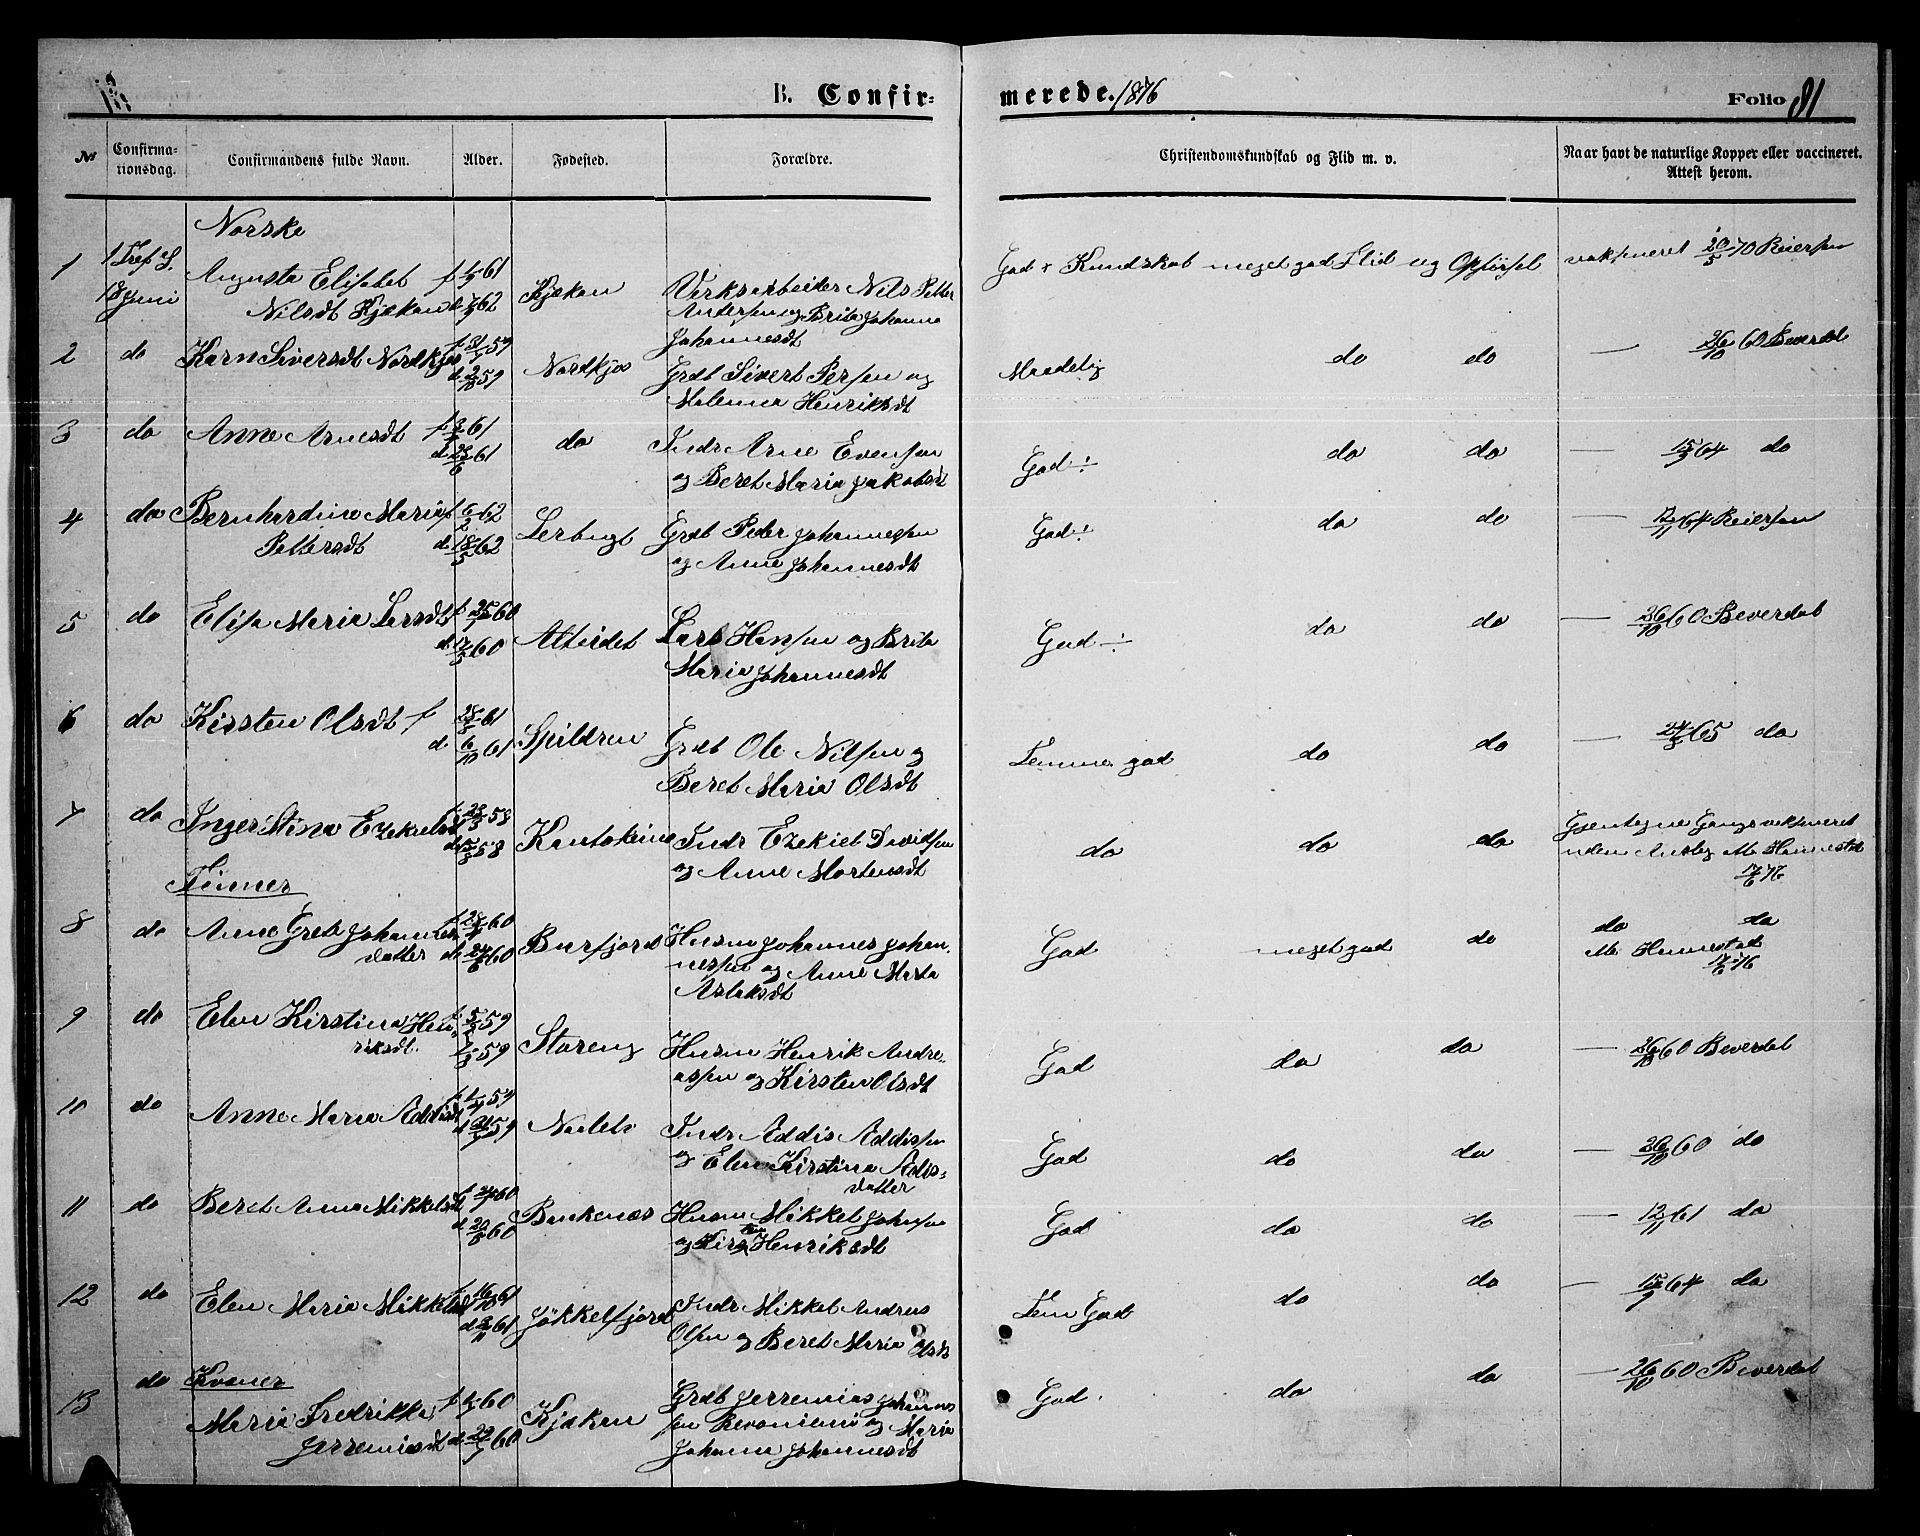 B. Confir-merede. 1876
Folio 81
No
Confirmationsdag.
Confirmandens fulde Navn.
Alder.
Fødested.
Forældre.
Christendomskundskab og Flid m. v.
Naar havt de naturlige Kopper eller vaccineret. Attest herom.
Norske
1 Tref S. 18 Juni Augusta Elisabet Nilsdt Kjækan Kjækan Verksarbeider Nils Petter
Andersen og Brita Johanna
Johannesdt
God + Kundskab meget god Flid og Opførsel vakcineret 20/5 70 Reiersen
2 do Karn Siversdt Nordkjos f 31/7 59 d. 2/10 59 Nordkjos Grdb Sivert Persen og
Malenna Henriksdt
Maadelig do do — 26/10 60 Beverdal
3 do Anne Arnesdt d. 23/6 61 do Indr Arne Evensen
og Beret Maria Jakobsdt
God ÷ do do — 15/9 64 do
4 do Bernhardine Maria Pettersdt f 6/2 62 d. 18/5 62 Lerbugt Grdb Peder Johannessen
og Anne Johannesdt
God ÷ do do — 12/11 64 Reiersen
5 do Elisa Maria Larsdt f 25/1 60 Alteidet Lars Hansen og Brita
Maria Johannesdt
God ÷ do do — 26/10 60 Beverdal
6 do Kirsten Olsdt f 28/8 61 d. 6/10 61 Spildren Grdb Ole Nilsen og
Beret Maria Olsdt
Temme. god do do — 24/8 65 do
7 do Inger Stina Ezekielsdt Kautokeino Indr Ezekiel Davidsen
og Anne Mortensdt
do do do Gjentagne Gange vakcineret
uden Anslag M. Hannestad
17/6 76
Finner
8 do Anne Grete Johannes
datter Burfjord Husm Johannes Johan-
nessen og Anne Marta
Aslaksdt
God meget god do do do
M. Hannestad
17/6 76
9 do Elen Kirstina Hen-
riksdt. Storeng Husm Henrik Andre-
assen og Kirsten Olsdt
God do do — 26/10 60 Beverdal
10 do Anne Maria Addisdt Indr Addis Addisen
og Elen Kirstina Adis-
datter
God do do — 26/10 60 do
11 do Beret Anna Mikkelsdt Bankenæs Husm Mikkel Johnsen
og Kirsten Henriksdt
God do do — 12/11 61 do
12 do Elen Maria Mikkelsdt f 16/10 61 Jøkkelfjord Indr Mikkel Andreas
Olsen og Beret Maria Olsdt
Tem God do do — 15/9 64 do
Kvæner
13 do Maria Fredrikke
Jerremiasdt Kjækan Grdb Jerremias Johannes
sen Bevaniemi og Maria
Johanna Johannesdt
God. do do — 26/10 60 Beverdal